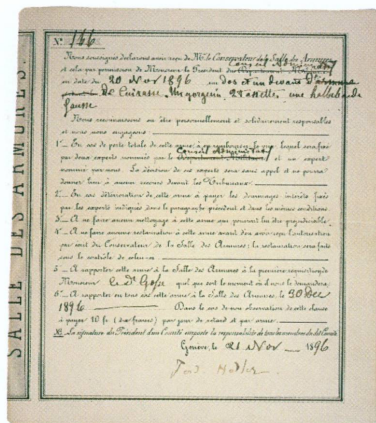 SALLE DES ARMURES.
N° 166
Nous soussignés déclarons avoir reçu de Mr le Conservateur de la Salle des Armures
Conseil Administratif
et cela par permission de Monsieur le Président du Département Militaire
en date du 20 Nov 1896 un dos et un devant d'armure
de Cuirasse. Un gorgerin, 2 tassettes, une hallebarde
fausse
Nous servirons en être personnellement et solidairement responsables
et nous nous engageons:
1° En cas de perte totale de cette arme à en rembourser le prix, lequel sera fixé
Conseil Administratif
par deux experts nommés par le Département Militaire et un expert
nommé par nous. La décision de ces experts sera sans appel et ne pourra
donner lieu à aucun recours devant les Tribunaux.
2° En cas détérioration de cette arme à payer les dommages intérêts fixés
par les experts indiqués dans le paragraphe précédent et dans les mêmes conditions.
3° A ne faire aucun nettoyage à cette arme qui pourrait lui être préjudiciable.
4° A ne faire aucune restauration à cette arme avant d'en avoir reçu l'autorisation
par écrit du Conservateur de la Salle des Armures; la restauration sera faite
sous le contrôle de celui-ci
5° A rapporter cette arme à la Salle des Armures à la première réquisition de
Monsieur le Dr Gosse quel que soit le moment où il nous le demandera.
6° A rapporter en tous cas cette arme à la Salle des Armures, le 30 Dec
1896. Dans le cas de non observation de cette clause
à payer 10 fr. (dix francs) par jour de retard et par arme.
NB. La signature du Président d'un Comité emporte la responsabilité de tous les membres du dit Comité
Genève, le 21 Nov 1896
Ferd. Hodler